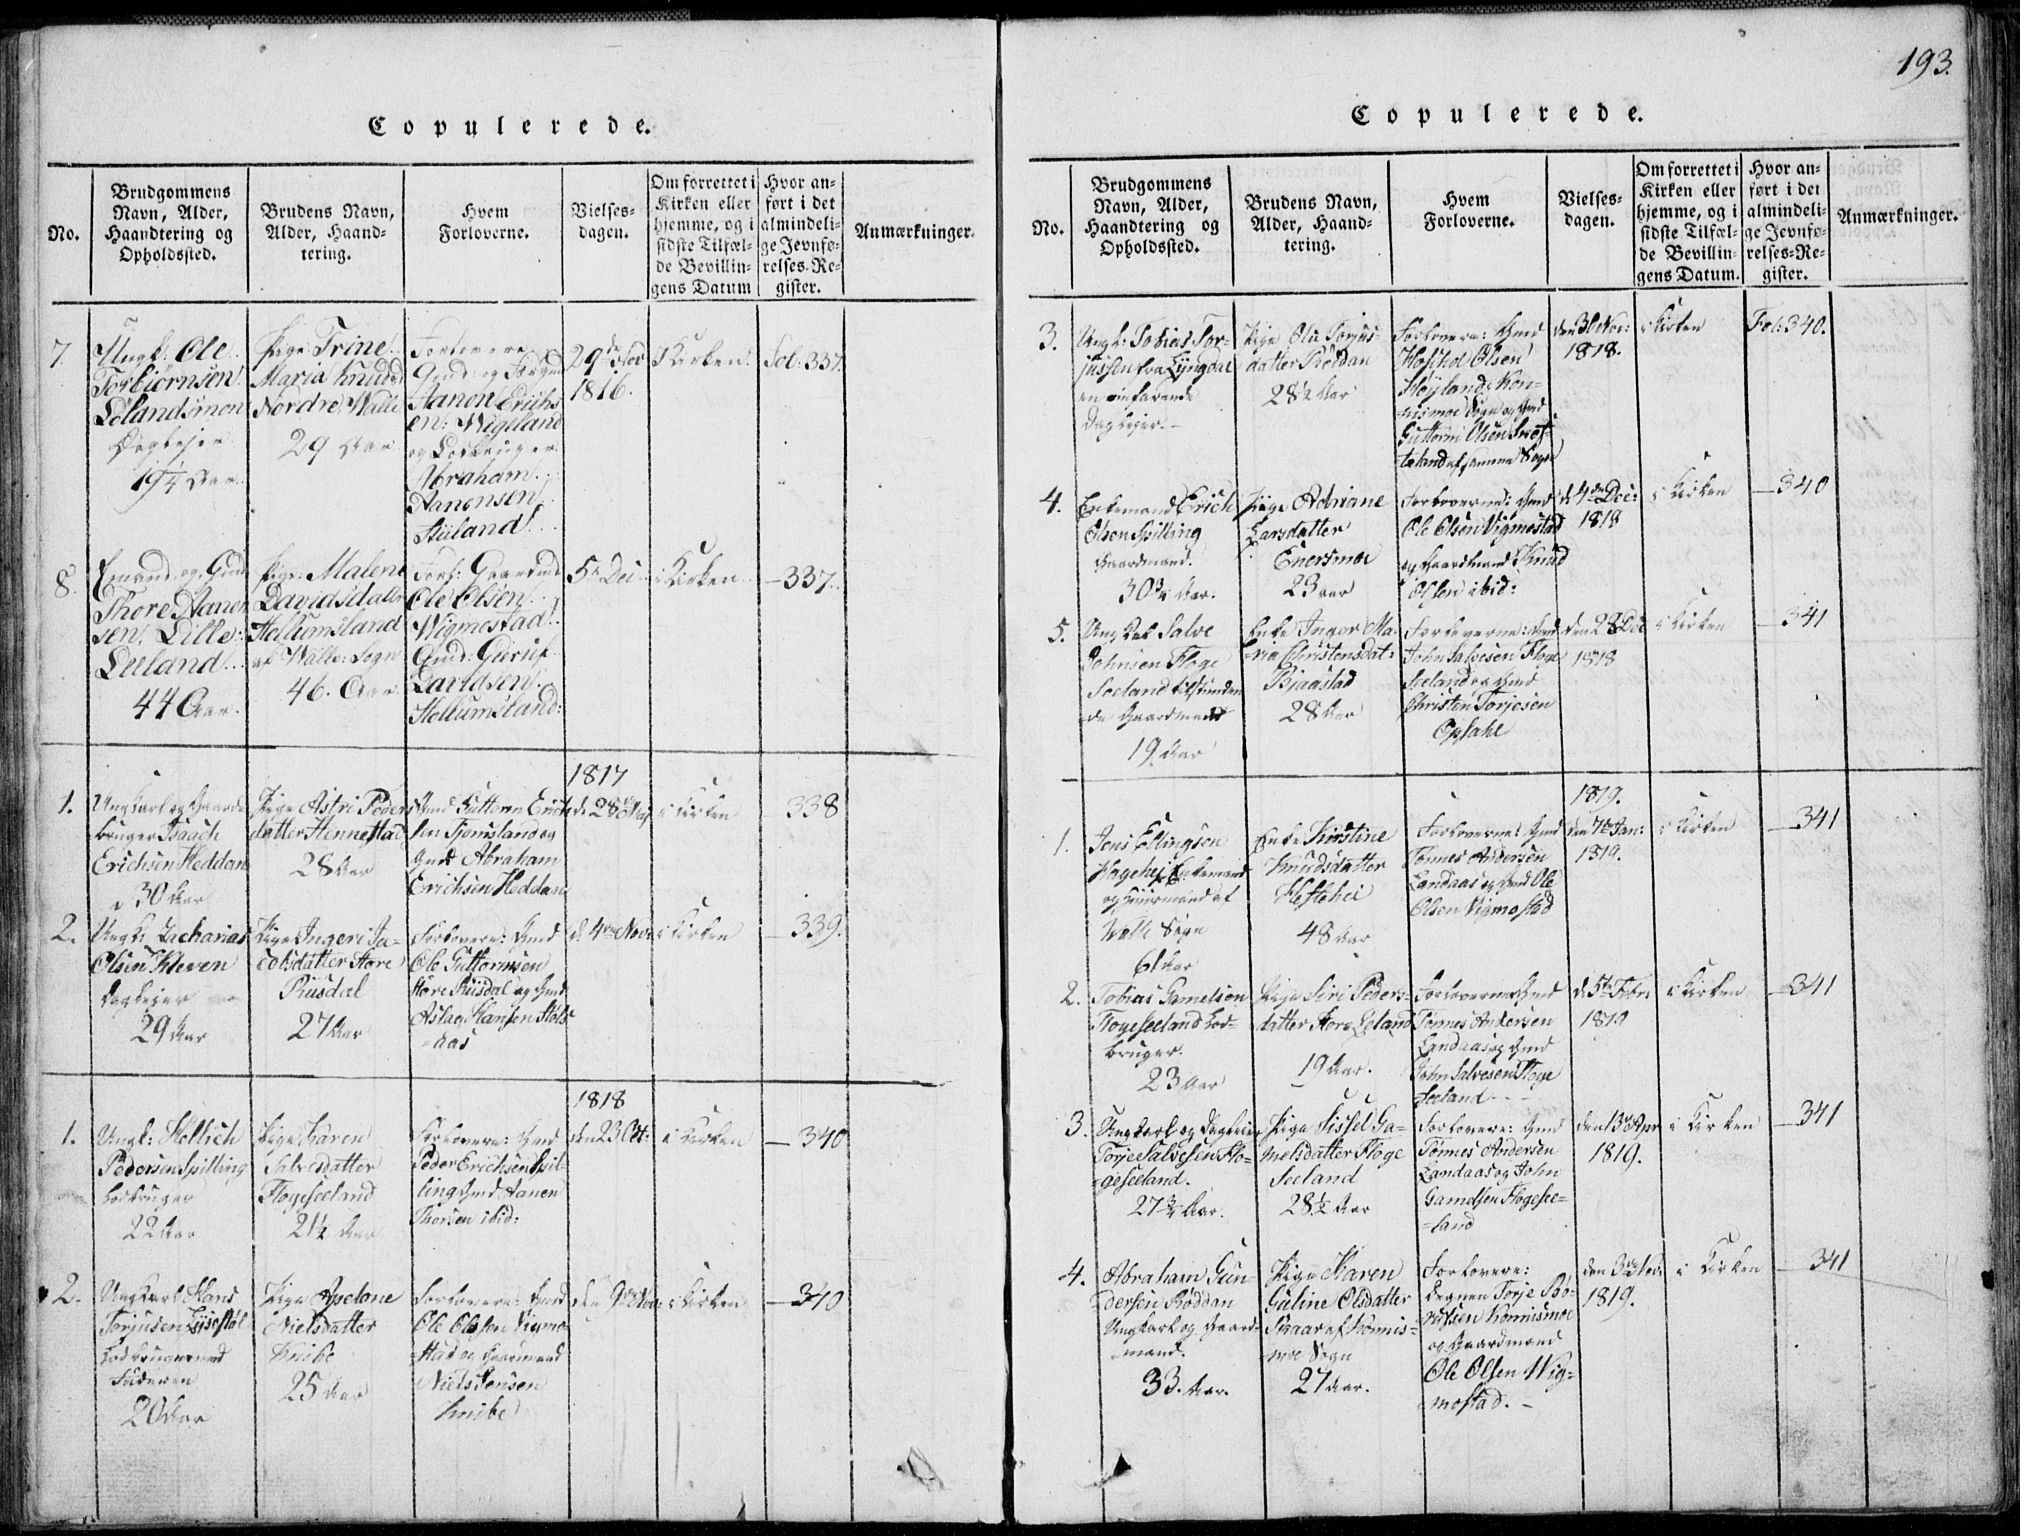 193.
Copulerede.
No.
Brudgommens
Navn, Alder,
Haandtering og
Opholdssted.
Brudens Navn,
Alder, Haand-
tering.
Hvem
Forloverne.
Vielses-
dagen.
Om forrettet i
Kirken eller
hjemme, og i
sidste Tilfæl-
de Bevillin-
gens Datum
Hvor an-
ført i det
almindeli-
ge Jevnfø-
relses-Re-
gister.
Anmærkninger.
7
Ungk: Ole
Torbiörnsen
Lölandsmon
Dagleier
19 1/4 Aar
Pige Trine
Maria Knuds
Nordre Walle
29 Aar
Forlovere
Gmd: og
Aanon Erichs
en: Wigeland
og Lodbruger
Abraham
Aanensen
Stuland
29de Nov
1816.
i Kirken
Fol: 337
8.
Emand og Gmd
Thore Aanen
sen Lille
Leeland
44 Aar.
Pige Malene
Davidsdatter
Hellumsland
af Walle: Sogn
46. Aar.
Forl: Gaardmd
Ole Olsen
Wigmestad
Gmd: Guruf
Davidsen
Hellumsland:
5te Dec
i Kirken
337.
1817
1.
Ungkarl og Gaard
bruger Isaach
Erichsen Heddan
30 Aar
Pige Astri Peders
datter Hennestad
28 Aar
Gmd Guttorm Erich
sen Tjomsland og
Gmd Abraham
Erichsen Heddan
d: 28de Maj
i Kirken
338
2.
Ungk: Zacharias
Olsen Kleven
Dagleier
29 Aar
Pige Ingeri Ja-
cobsdatter Store
Riisdal
27 Aar
Forlovere: Gmd
Ole Guttormsen
Store Riisdal og Gmd
Aslag Hansen Stöls
=aas
d: 4de Novr
i Kirken
339.
1818
1.
Ungk: Mellich
Pedersen Spilling
Lodbruger
22 Aar
Pige Karen
Salvesdatter
Flogeseeland
21 1/2 Aar
Forlovere: Gmd
Peder Erichsen Spil-
ling Gmd Aanen
Thorsen ibid:
den 23 Oct:
i Kirken
340
2.
Ungkarl Hans
Torjusen Lysestöl
Lodbruger med
Faderen
20 Aar
Pige Apelone
Nielsdatter
Knibe
25 Aar
Forlovere: Gmd
Ole Olsen Vigmo-
stad og Gaardmand
Niels Jensen
Knibe
den 9de Nov
i Kirken
340
Copulerede.
No.
Brudgommens
Navn, Alder,
Haandtering og
Opholdssted.
Brudens Navn,
Alder, Haand-
tering.
Hvem
Forloverne.
Vielses-
dagen.
Om forrettet i
Kirken eller
hjemme, og i
sidste Tilfæl-
de Bevillin-
gens Datum.
Hvor an-
ført i det
almindeli-
ge Jevnfø-
relses-Re-
gister.
Anmærkninger.
3.
Ungk: Tobias Tor-
jussen fra Lyngdal
en omfarende
Dagleier.
Pige Olu Torjus-
datter Röddan
28 1/2 Aar
Forlovere: Gmd
Olsen
Höyland Kon-
nismoe Sogn og Gmd
Guttorm Olsen
land af samme Sogn
den 30 Nov:
1818.
i Kirken
Fol: 340.
4.
Enkemand Erich
Olsen Spilling
Gaardmand.
30 3/4 Aar.
Pige Adriane
Larsdatter
Enersmoe
23 aar
Forloverne: Gmd
Ole Olsen Vigmestad
og Gaardmand Knud
Olsen ibid:
d: 4de Dec:
1818
i Kirken
340
5.
Ungkal Salve
Johnsen Floge
Seeland tilstunden
de Gaardmand
19 Aar
Enke Inger Ma-
ria Christensdat:
Bjaastad
28 Aar
Forloverne: Gmd
John Salvesen Floge
Seeland og Gmd
Christen Torjesen
Opsahl
den 28 Dec
1818
i Kirken
341
1819.
1.
Jens Ellingsen
Hagehei Enkemand
og Huusmand af
Walle Sogn
61 Aar
Enke Kirstine
Knudsdatter
Heftehei
48 Aar
Forloverne: Gmd
Tönnes Andersen
Landaas og Gmd Ole
Olsen Vigmostad
den 7de Jan:
1819.
i Kirken
341
2.
Tobias Gamelsen
Flogeseeland Lod-
bruger.
23 Aar
Pige Siri Peders-
datter Store Leland
19 Aar.
Forloverne Gmd
Tönnes Andersen
Landaas og Gmd
John Salvesen Floge
Seeland
d: 5te Febr:
1819
i Kirken
341
3.
Ungkarl og Dagleier
Torje Salvesen Flo-
geseeland.
27 3/4 Aar.
Pige Sissel Ga-
melsdatter Floge
Seeland
28 1/2 Aar
Forlovere: Gmd
Tönnes Andersen
Landaas og John
Gamelsen Flogesee-
=land
den 13de Apr
1819.
i Kirken
341
4.
Abraham Gun-
dersen Röddan
Ungkarl og Gaard-
mand.
33. Aar.
Pige Maren
Guline Olsdatter
Skaar af Konnis-
moe Sogn
27 Aar.
Forlovere:
Degnen Torje Bö-
Konnismoe
og Gaardmand
Ole Olsen Wig-
mostad.
den 3de Nov:
1819.
i Kirken
341